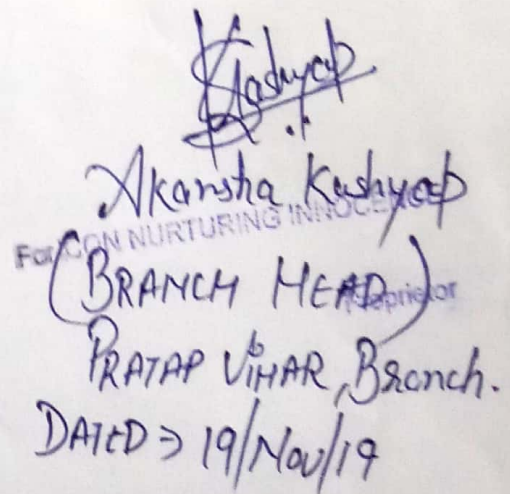 Kashyap
Akansha Kashyap
For ICON NURTURING INNOCENCE
(BRANCH HEAD)
Proprietor
PRATAP VIHAR, Branch.
DATED → 19/Nov/19